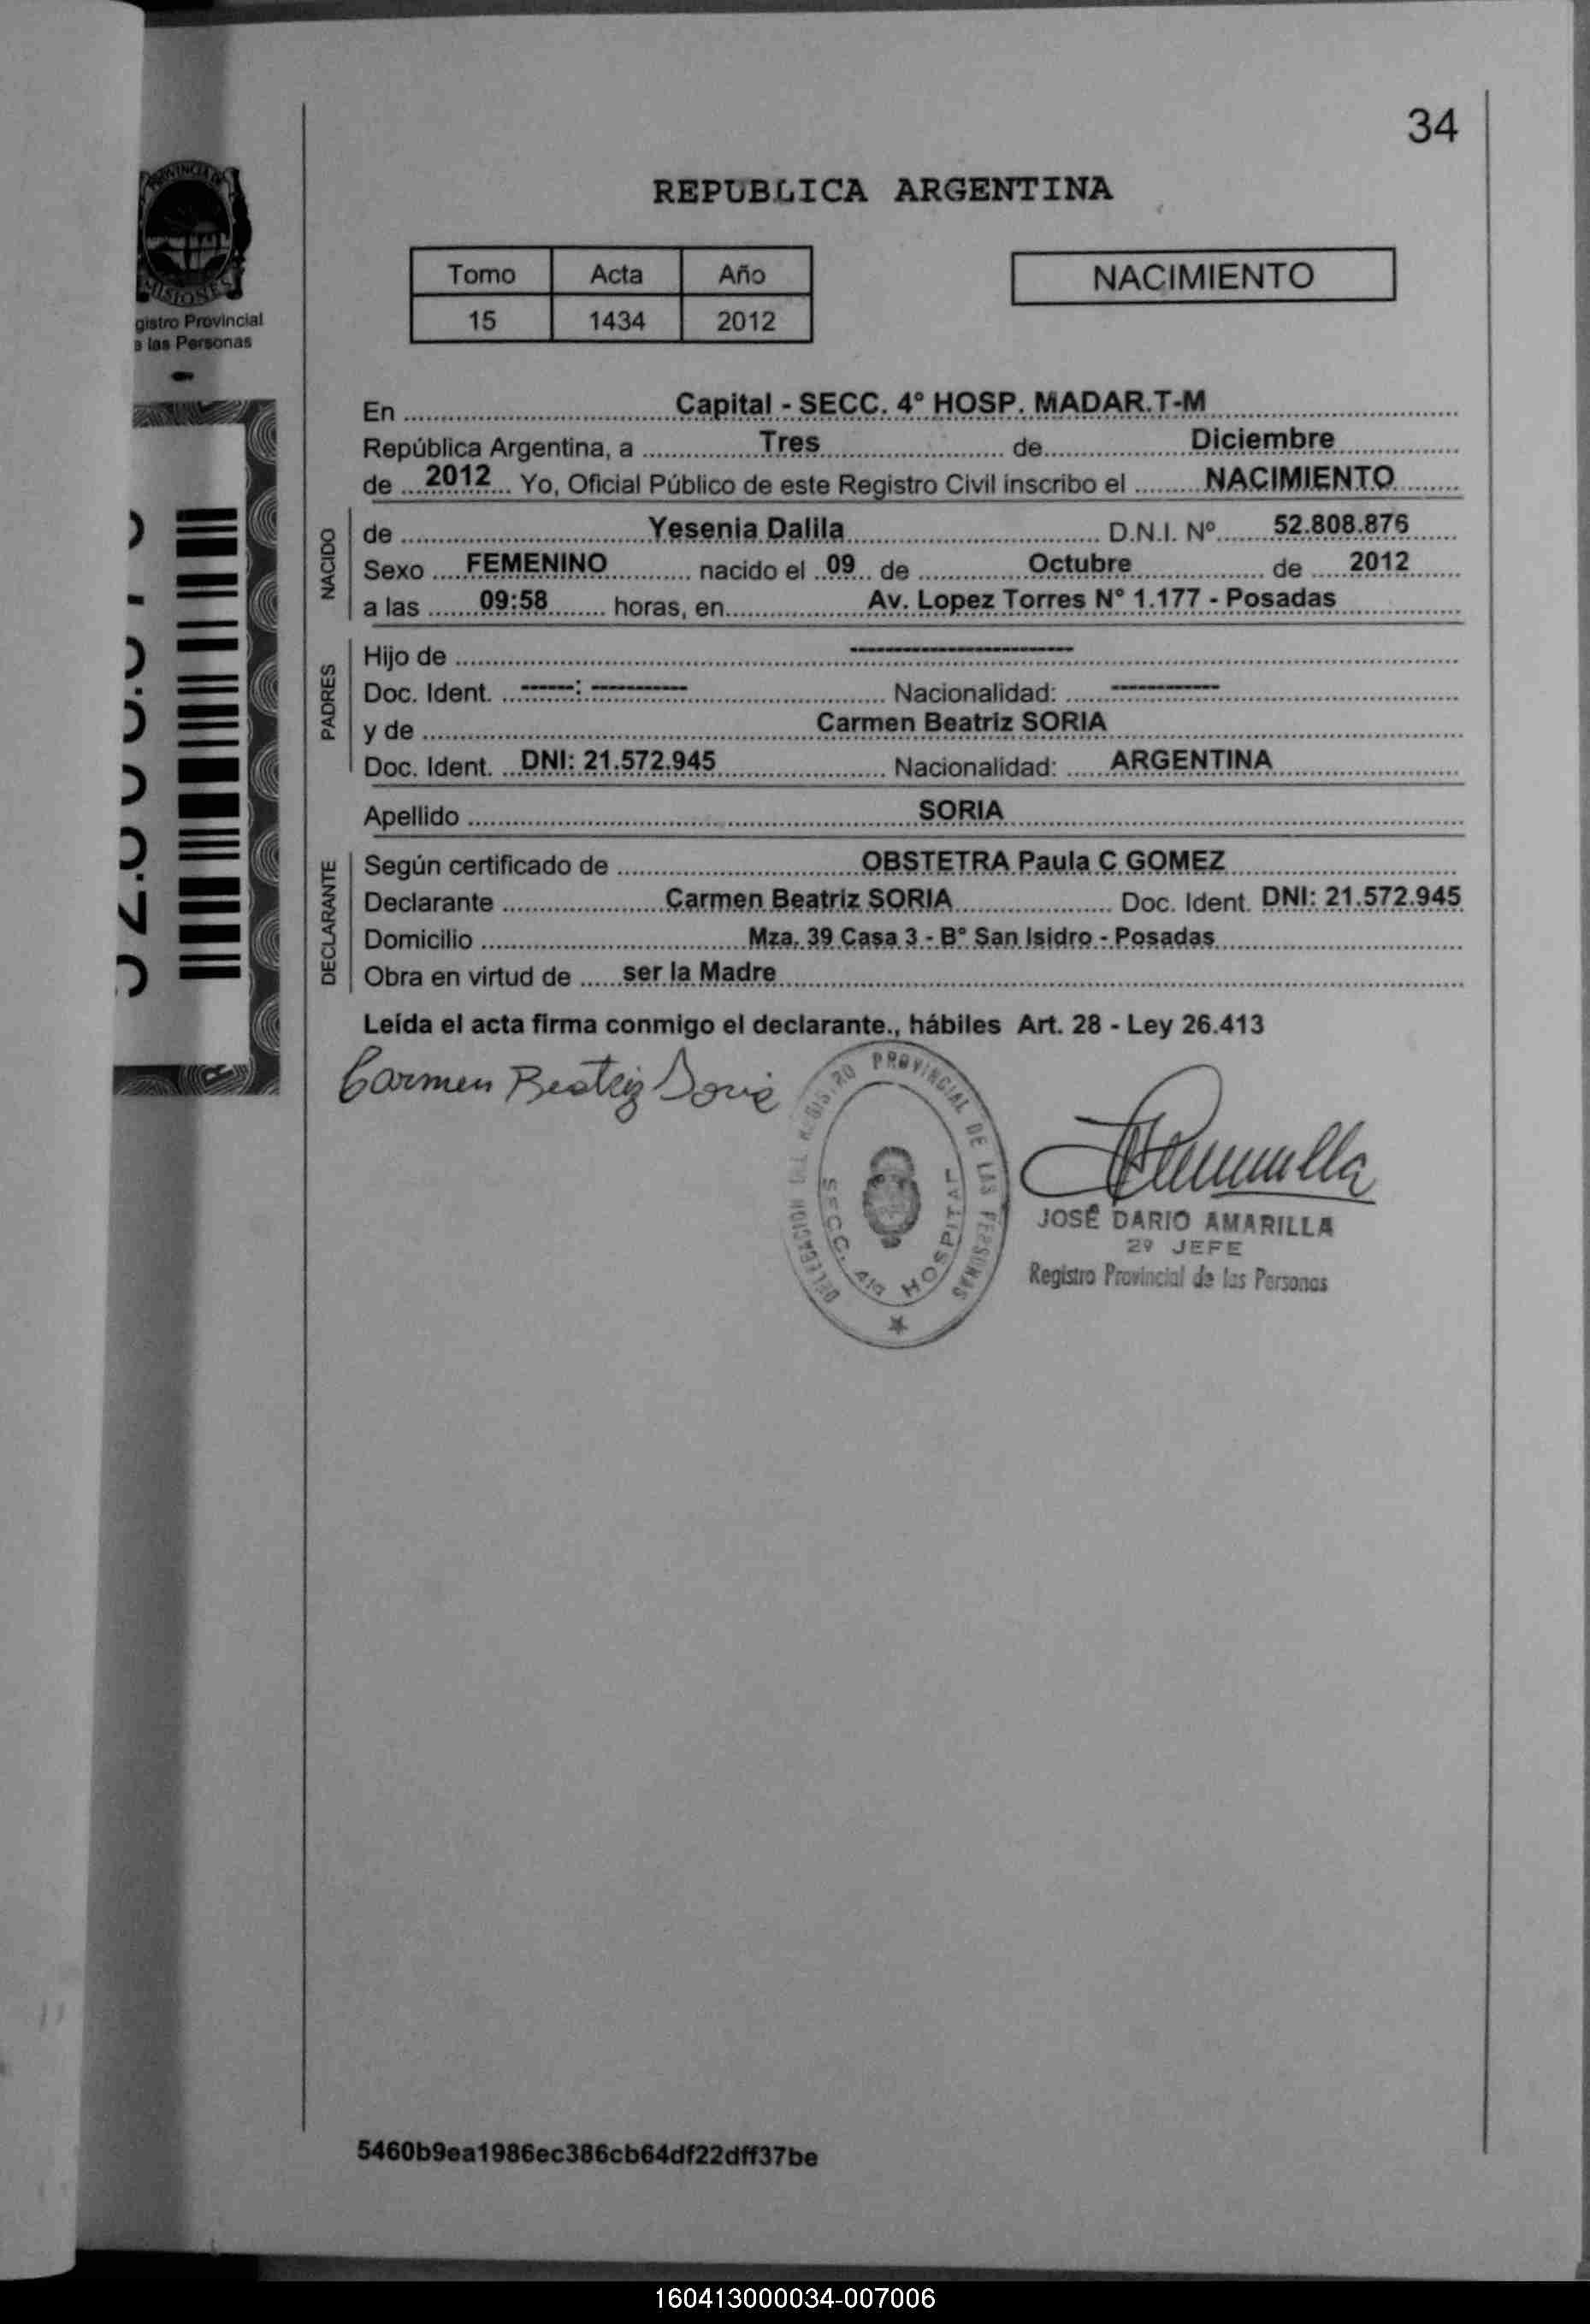 34
PROVINCIA DE
MISIONES
gistro Provincial
las Personas
REPUBLICA ARGENTINA
Tomo Acta Año
15 1434 2012
NACIMIENTO
En Capital - SECC. 4° HOSP. MADAR.T-M
República Argentina, a Tres de Diciembre
de 2012 Yo, Oficial Público de este Registro Civil inscribo el NACIMIENTO
NACIDO
de Yesenia Dalila D.N.I. Nº 52.808.876
Sexo FEMENINO nacido el 09 de Octubre de 2012
a las 09:58 horas, en Av. Lopez Torres N° 1.177 - Posadas
PADRES
Hijo de ----------------------
Doc. Ident. ------: ---------- Nacionalidad: -----------
y de Carmen Beatriz SORIA
Doc. Ident. DNI: 21.572.945 Nacionalidad: ARGENTINA
Apellido SORIA
DECLARANTE
Según certificado de OBSTETRA Paula C GOMEZ
Declarante Carmen Beatriz SORIA Doc. Ident. DNI: 21.572.945
Domicilio Mza. 39 Casa 3 - B° San Isidro - Posadas
Obra en virtud de ser la Madre
Leída el acta firma conmigo el declarante., hábiles Art. 28 - Ley 26.413
Carmen Beatriz Soria
DELEGACION DEL REGISTRO PROVINCIAL DE LAS PERSONAS
SECC. 4ta HOSPITAL
JOSÉ DARIO AMARILLA
2º JEFE
Registro Provincial de las Personas
5460b9ea1986ec386cb64df22dff37be
160413000034-007006